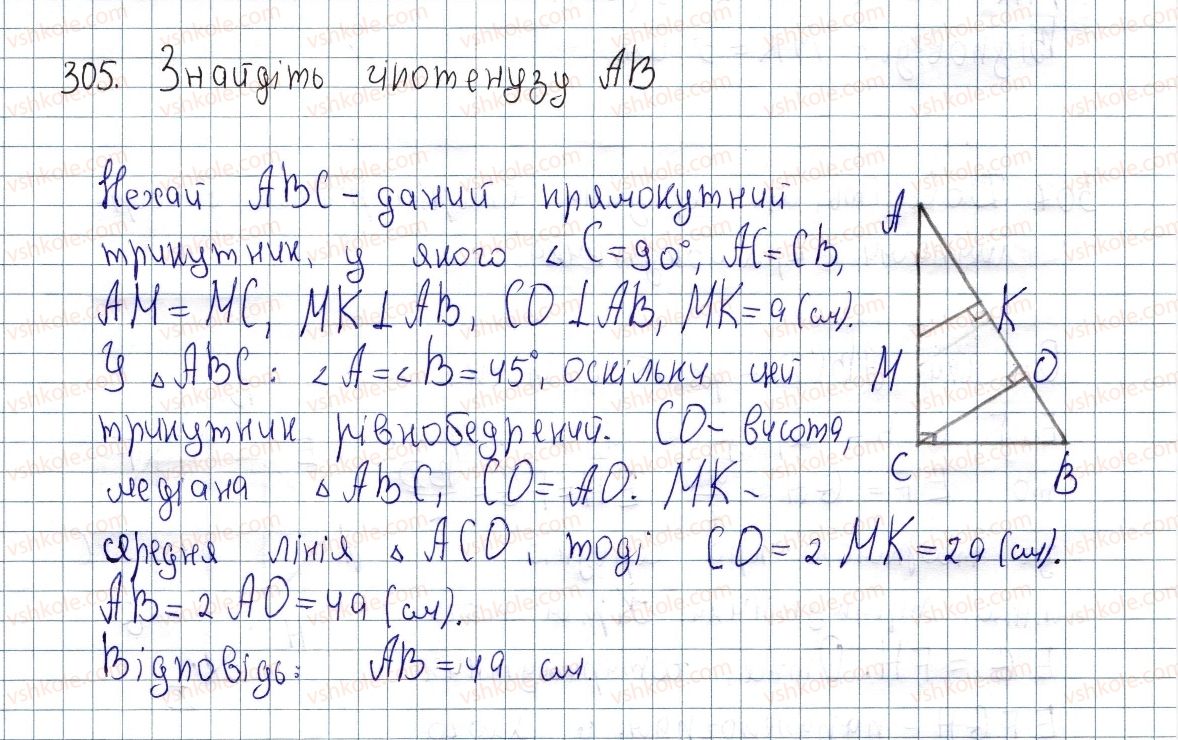 305. Знайдіть гіпотенузу AB
Нехай ABC - даний прямокутний
трикутник, у якого ∠ C = 90°, AC = CB,
AM = MC, MK ⊥ AB, CO ⊥ AB, MK = a (см).
У △ ABC: ∠ A = ∠ B = 45°, оскільки цей
трикутник рівнобедрений. CO - висота,
медіана △ ABC, CO = AO. MK -
середня лінія △ ACO, тоді CO = 2 MK = 2a (см).
AB = 2 AO = 4a (см).
Відповідь: AB = 4a см.
A
K
M
O
C
B
vshkole.com